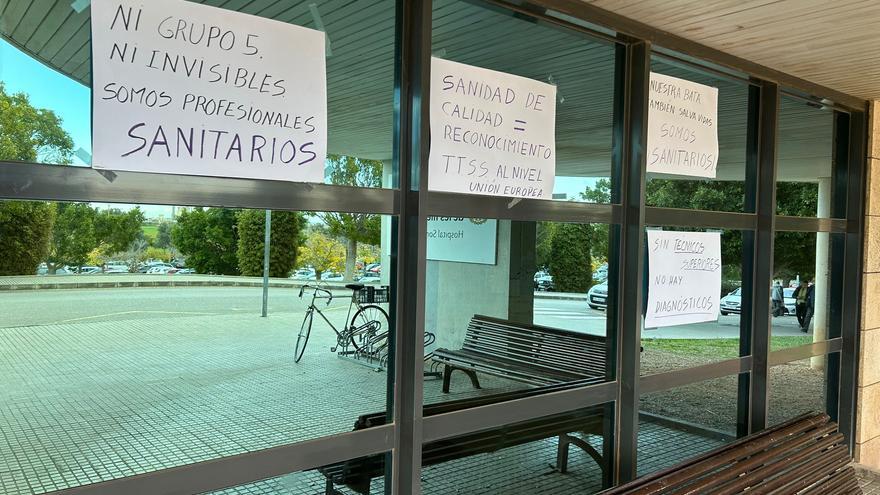 NI GRUPO 5.
NI INVISIBLES
SOMOS PROFESIONALES
SANITARIOS
SANIDAD DE
CALIDAD =
RECONOCIMIENTO
TTSS AL NIVEL
UNIÓN EUROPEA
NUESTRA BATA
TAMBIÉN SALVA VIDAS
SOMOS
SANITARIOS!
SIN TÉCNICOS
SUPERIORES
NO HAY
DIAGNÓSTICOS
Hospital Son